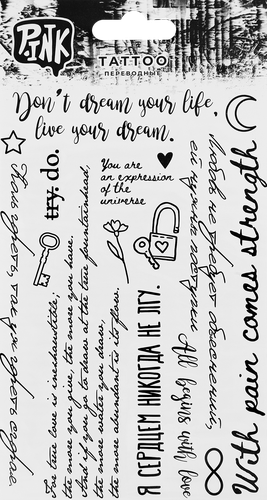 PINK
TATTOO
ПЕРЕВОДНЫЕ
Don't dream your life,
live your dream.
try. do.
You are
an expression
of the
universe
For true love is inexhaustible;
the more you give, the more you have.
And if you go to draw at the true fountainhead,
the more water you draw,
the more abundant is its flow.
Я СЕРДЦЕМ НИКОГДА НЕ ЛГУ.
All begins with love
Любовь не требует объяснений,
ей нужны
With pain comes strength